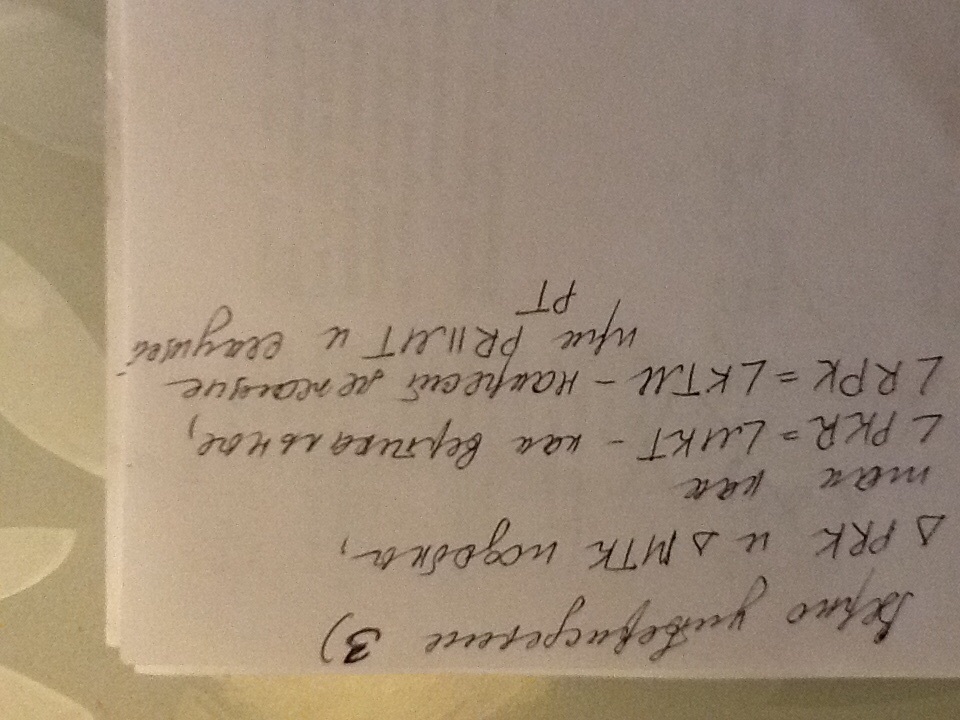 Верно утверждение 3)
△ PRK и △ MTK подобна,
так как
∠ PKR = ∠ MKT - как вертикальное,
∠ RPK = ∠ KTM - накрест лежащие
при PR || MT и секущей
PT